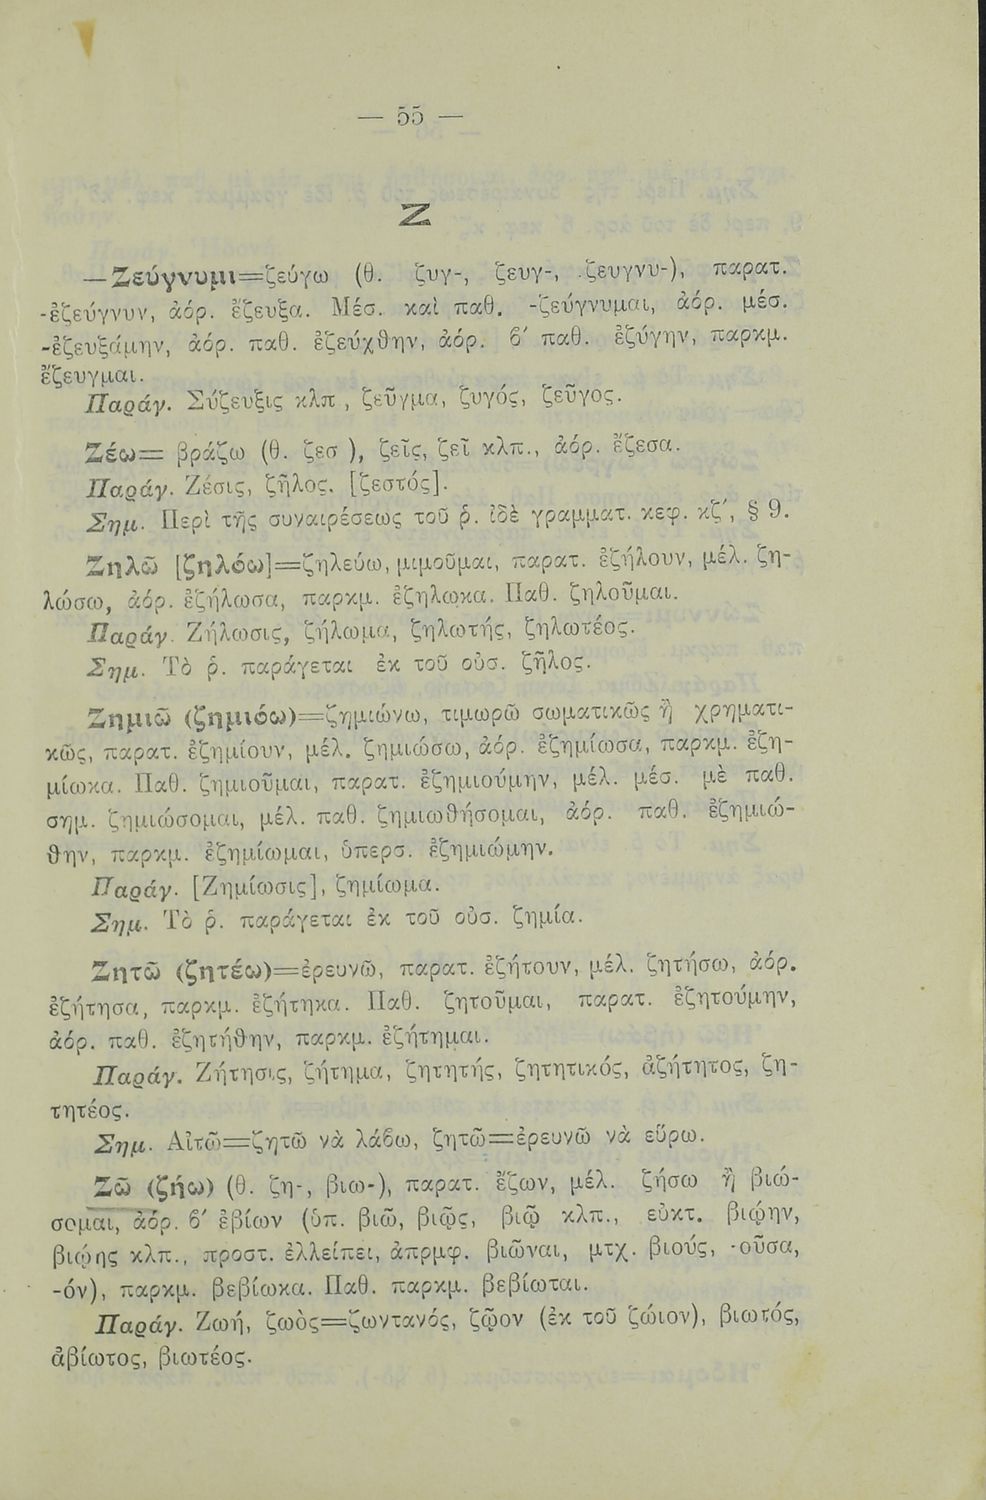 — 55 —
Ζ
—Ζεύγνυμι=ζεύγω (θ. ζυγ-, ζευγ-, ζευγνυ-), παρατ.
-ἐζεύγνυν, ἀόρ. ἔζευξα. Μέσ. καὶ παθ. -ζεύγνυμαι, ἀόρ. μέσ.
-ἐζευξάμην, ἀόρ. παθ. ἐζεύχθην, ἀόρ. β′ παθ. ἐζύγην, παρκμ.
ἔζευγμαι.
Παράγ. Σύζευξις κλπ , ζεῦγμα, ζυγός, ζεῦγος.
Ζέω= βράζω (θ. ζεσ ), ζεῖς, ζεῖ κλπ., ἀόρ. ἔζεσα.
Παράγ. Ζέσις, ζῆλος. [ζεστός].
Σημ. Περὶ τῆς συναιρέσεως τοῦ ῥ. ἰδὲ γραμματ. κεφ. κζ′, § 9.
Ζηλῶ [ζηλόω]=ζηλεύω, μιμοῦμαι, παρατ. ἐζήλουν, μέλ. ζη-
λώσω, ἀόρ. ἐζήλωσα, παρκμ. ἐζήλωκα. Παθ. ζηλοῦμαι.
Παράγ. Ζήλωσις, ζήλωμα, ζηλωτής, ζηλωτέος.
Σημ. Τὸ ῥ. παράγεται ἐκ τοῦ οὐσ. ζῆλος.
Ζημιῶ (ζημιόω)=ζημιώνω, τιμωρῶ σωματικῶς ἢ χρηματι-
κῶς, παρατ. ἐζημίουν, μέλ. ζημιώσω, ἀόρ. ἐζημίωσα, παρκμ. ἐζη-
μίωκα. Παθ. ζημιοῦμαι, παρατ. ἐζημιούμην, μέλ. μέσ. μὲ παθ.
σημ. ζημιώσομαι, μέλ. παθ. ζημιωθήσομαι, ἀόρ. παθ. ἐζημιώ-
θην, παρκμ. ἐζημίωμαι, ὑπερσ. ἐζημιώμην.
Παράγ. [Ζημίωσις], ζημίωμα.
Σημ. Τὸ ῥ. παράγεται ἐκ τοῦ οὐσ. ζημία.
Ζητῶ (ζητέω)=ἐρευνῶ, παρατ. ἐζήτουν, μέλ. ζητήσω, ἀόρ.
ἐζήτησα, παρκμ. ἐζήτηκα. Παθ. ζητοῦμαι, παρατ. ἐζητούμην,
ἀόρ. παθ. ἐζητήθην, παρκμ. ἐζήτημαι.
Παράγ. Ζήτησις, ζήτημα, ζητητής, ζητητικός, ἀζήτητος, ζη-
τητέος.
Σημ. Αἰτῶ=ζητῶ νὰ λάβω, ζητῶ=ἐρευνῶ νὰ εὕρω.
Ζῶ (ζήω) (θ. ζη-, βιω-), παρατ. ἔζων, μέλ. ζήσω ἢ βιώ-
σομαι, ἀόρ. β′ ἐβίων (ὑπ. βιῶ, βιῷς, βιῷ κλπ., εὐκτ. βιῴην,
βιῴης κλπ., προστ. ἐλλείπει, ἀπρμφ. βιῶναι, μτχ. βιούς, -οῦσα,
-όν), παρκμ. βεβίωκα. Παθ. παρκμ. βεβίωται.
Παράγ. Ζωή, ζωὸς=ζωντανός, ζῷον (ἐκ τοῦ ζώιον), βιωτός,
ἀβίωτος, βιωτέος.